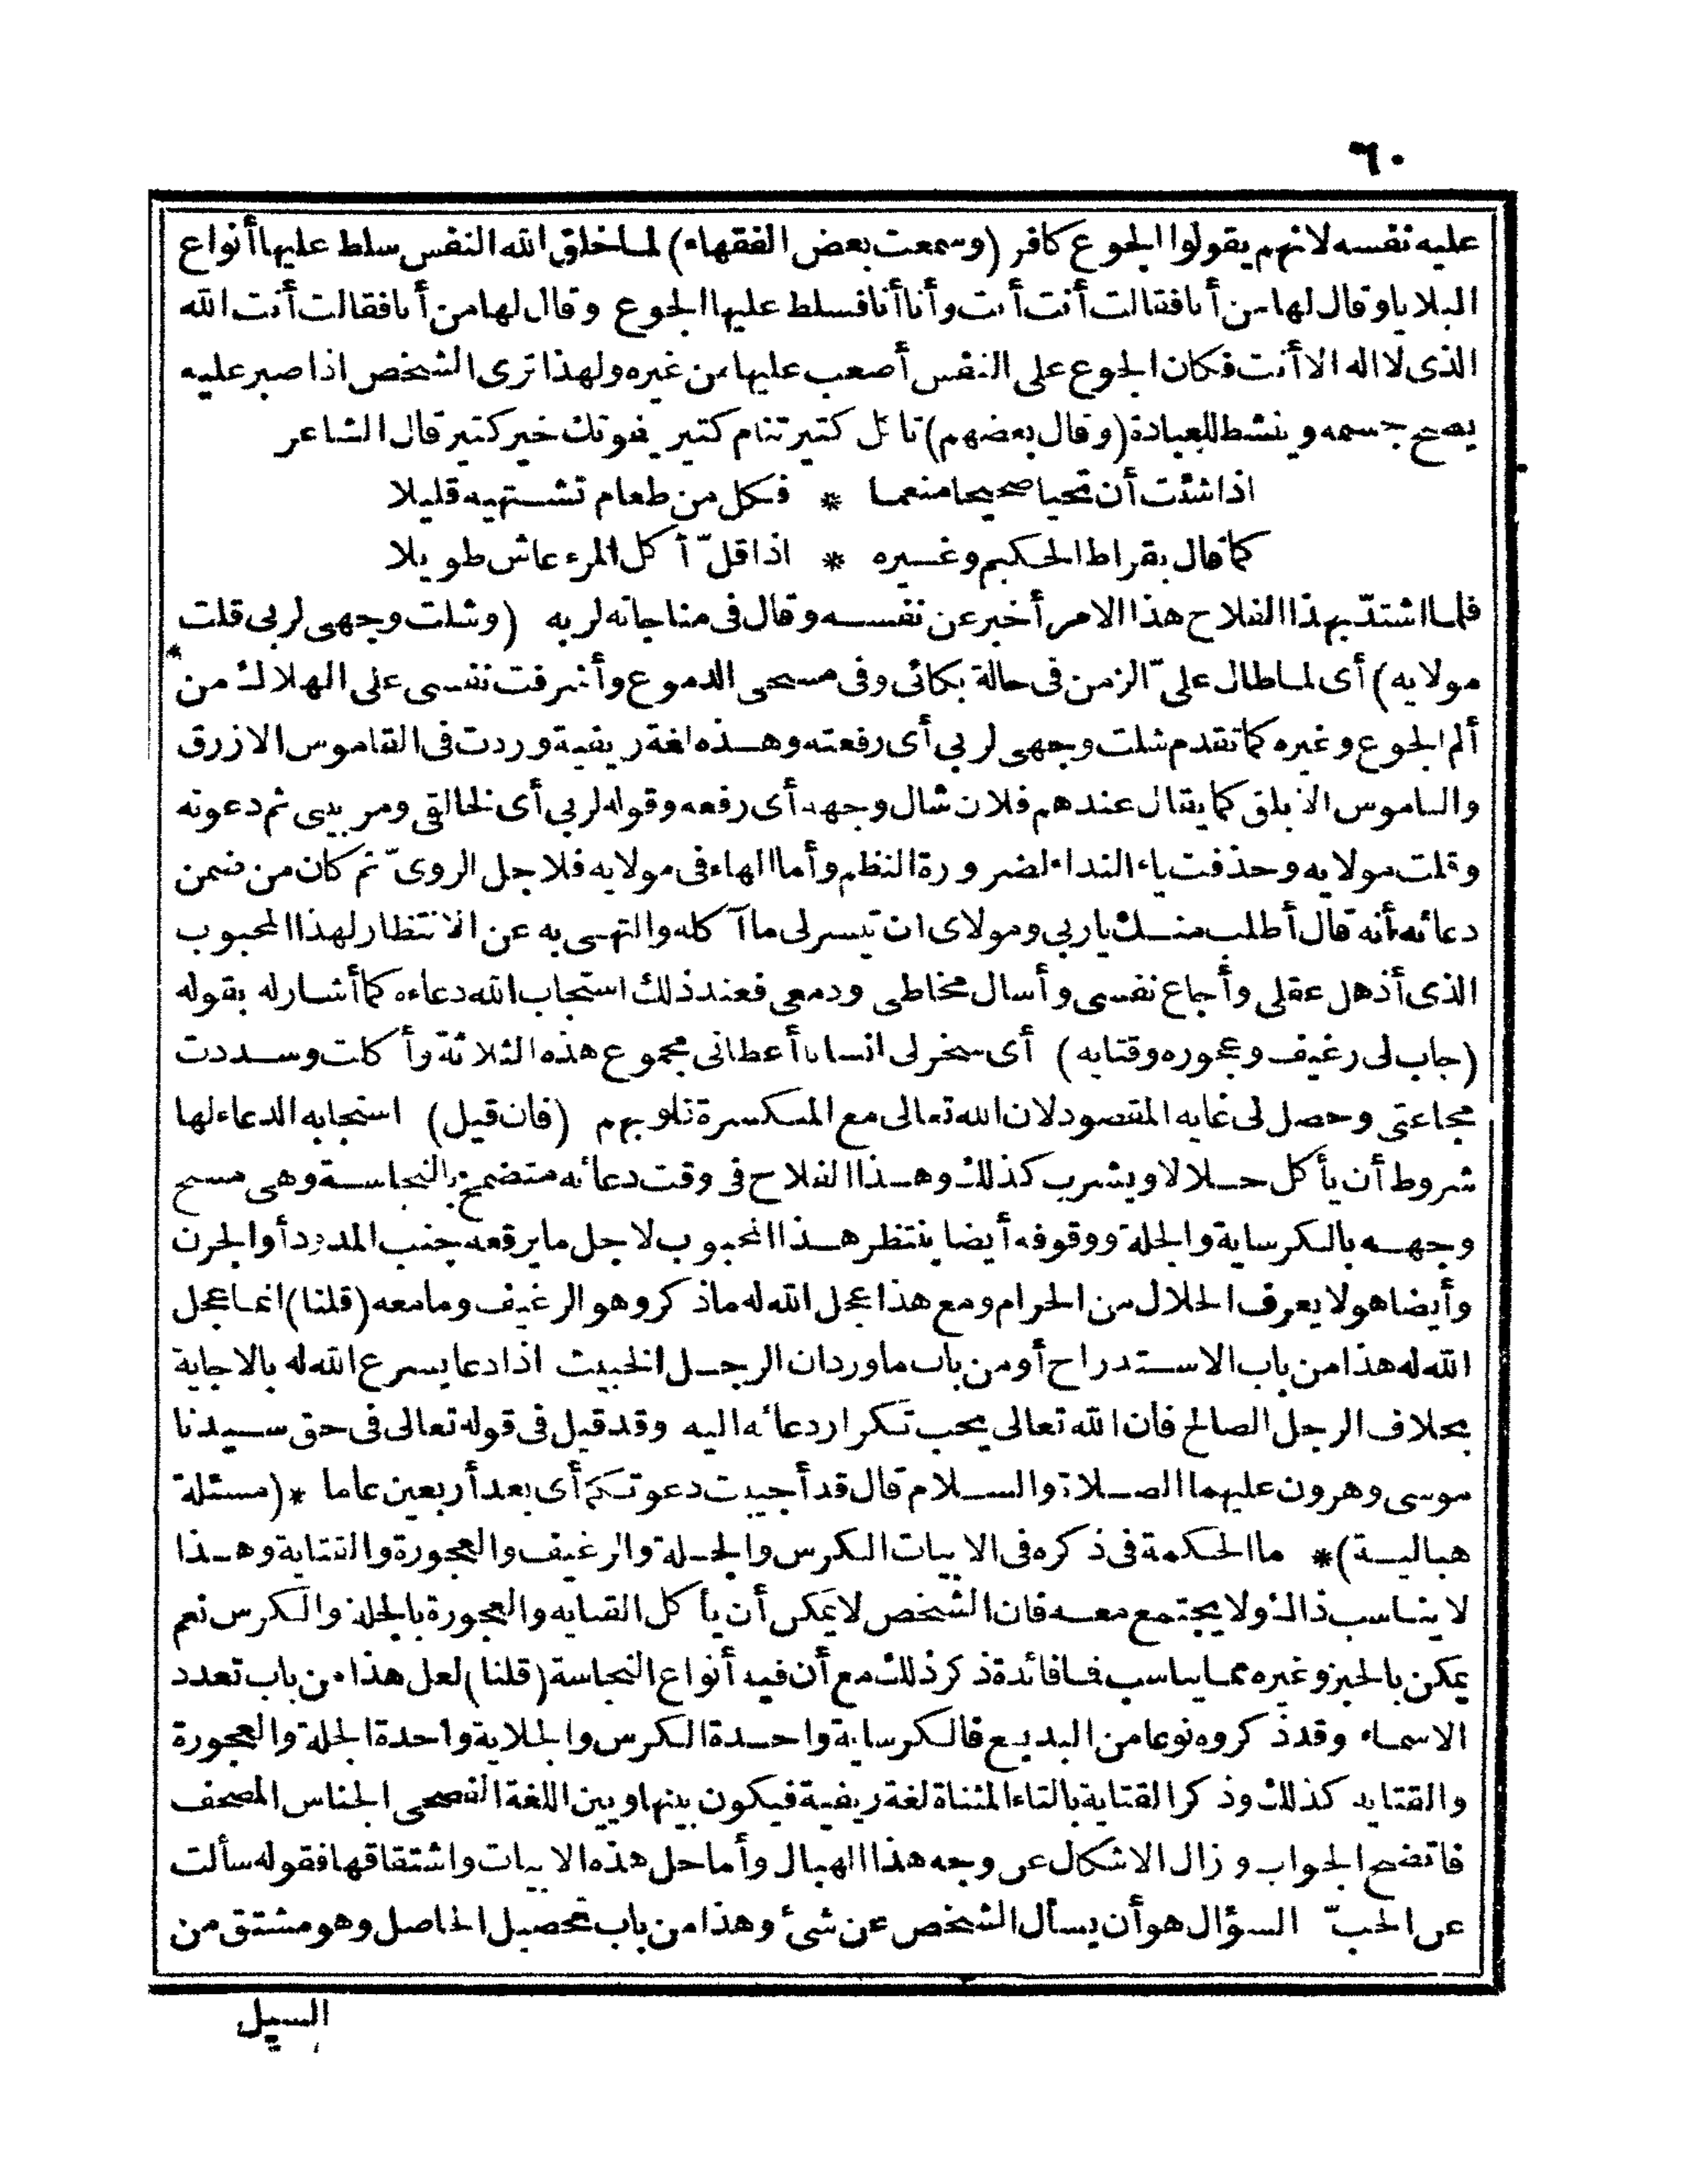 ٦٠
عليه نفسه لانهم يقولوا الجوع كافر (وسمعت بعض الفقهاء) لما خلق الله النفس سلط عليها أنواع
البلايا وقال لها من أنا فقالت أنت أنت وأنا أنا فسلط عليها الجوع وقال لها من أنا فقالت أنت الله
الذى لا اله الا أنت فكان الجوع على النفس أصعب عليها من غيره ولهذا ترى الشخص اذا صبر عليه
يصح جسمه وينشط للعبادة (وقال بعضهم) تاكل كتير تنام كتير يفوتك خير كتير قال الشاعر
اذا شئت أن تحيا صحيحا منعما * فكل من طعام تشتهيه قليلا
كما قال بقراط الحكيم وغيره * اذا قلّ أكل المرء عاش طويلا
فلما اشتدّ بهذا الفلاح هذا الامر أخبر عن نفسه وقال فى مناجاته لربه (وشلت وجهى لربى قلت *
مولايه) أى لما طال علىّ الزمن فى حالة بكائى وفى مسحى الدموع وأشرفت نفسى على الهلاك من
ألم الجوع وغيره كما تقدم شلت وجهى لربى أى رفعته وهذه لغة ريفية وردت فى القاموس الازرق
والناموس الابلق كما يقال عندهم فلان شال وجهه أى رفعه وقوله لربى أى لخالقى ومربيى ثم دعوته
وقلت مولايه وحذفت ياء النداء لضرورة النظم وأما الهاء فى مولايه فلاجل الروىّ ثم كان من ضمن
دعائه أنه قال أطلب منك يا ربى ومولاى ان تيسر لى ما آكله والتهى به عن الانتظار لهذا المحبوب
الذى أذهل عقلى وأجاع نفسى وأسال مخاطى ودمعى فعند ذلك استجاب الله دعاءه كما أشار له بقوله
(جاب لى رغيف وعجوره وقتايه) أى سخر لى انسانا أعطانى مجموع هذه الثلاثة وأكلت وسددت
مجاعتى وحصل لى غايه المقصود لان الله تعالى مع المنكسرة قلوبهم (فان قيل) استجابه الدعاء لها
شروط أن يأكل حلالا ويشرب كذلك وهذا الفلاح فى وقت دعائه متضمخ بالنجاسة وهى مسح
وجهه بالكرساية والجلة ووقوفه أيضا ينتظر هذا المحبوب لاجل ما يرقعه جنب المدود أو الجرن
وأيضا هو لا يعرف الحلال من الحرام ومع هذا عجل الله له ما ذكر وهو الرغيف وما معه (قلنا) انما عجل
الله له هذا من باب الاستدراج أو من باب ما ورد ان الرجل الخبيث اذا دعا يسرع الله له بالاجابة
بخلاف الرجل الصالح فان الله تعالى يحب تكرار دعائه اليه وقد قيل فى قوله تعالى فى حق سيدنا
موسى وهرون عليهما الصلاة والسلام قال قد أجيبت دعوتكما أى بعد أربعين عاما *(مسئلة
هبالية)* ما الحكمة فى ذكره فى الابيات الكرس والجلة والرغيف والعجورة والقتاية وهذا
لا يناسب ذاك ولا يجتمع معه فان الشخص لا يمكن أن يأكل القتايه والعجورة بالجلة والكرس نعم
يمكن بالخبز وغيره مما يناسب فما فائدة ذكر ذلك مع أن فيه أنواع النجاسة (قلنا) لعل هذا من باب تعدد
الاسماء وقد ذكروه نوعا من البديع فالكرساية واحدة الكرس والجلاية واحدة الجلة والعجورة
والقتايه كذلك وذكر القتاية بالتاء المثناة لغة ريفية فيكون بينها وبين اللغة الفصحى الجناس المصحف
فاتضح الجواب وزال الاشكال عن وجه هذا الهبال وأما حل هذه الابيات واشتقاقها فقوله سألت
عن الحبّ السؤال هو أن يسأل الشخص عن شئ وهذا من باب تحصيل الحاصل وهو مشتق من
السيل